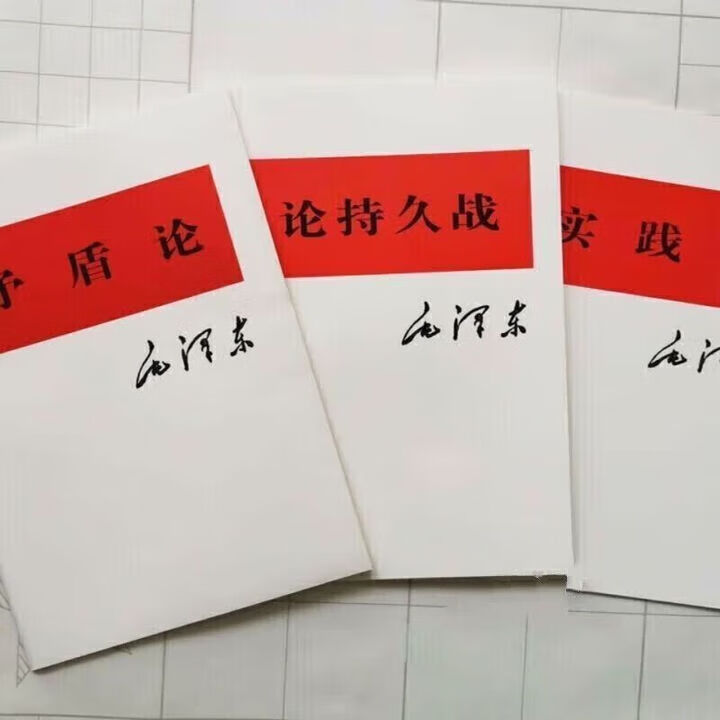 矛盾论
毛泽东
论持久战
毛泽东
实践
毛泽